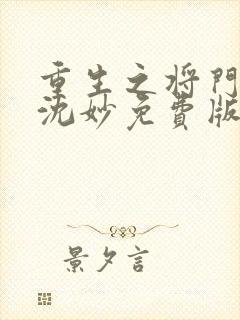 重生之将門
沈妙免費版
景夕言